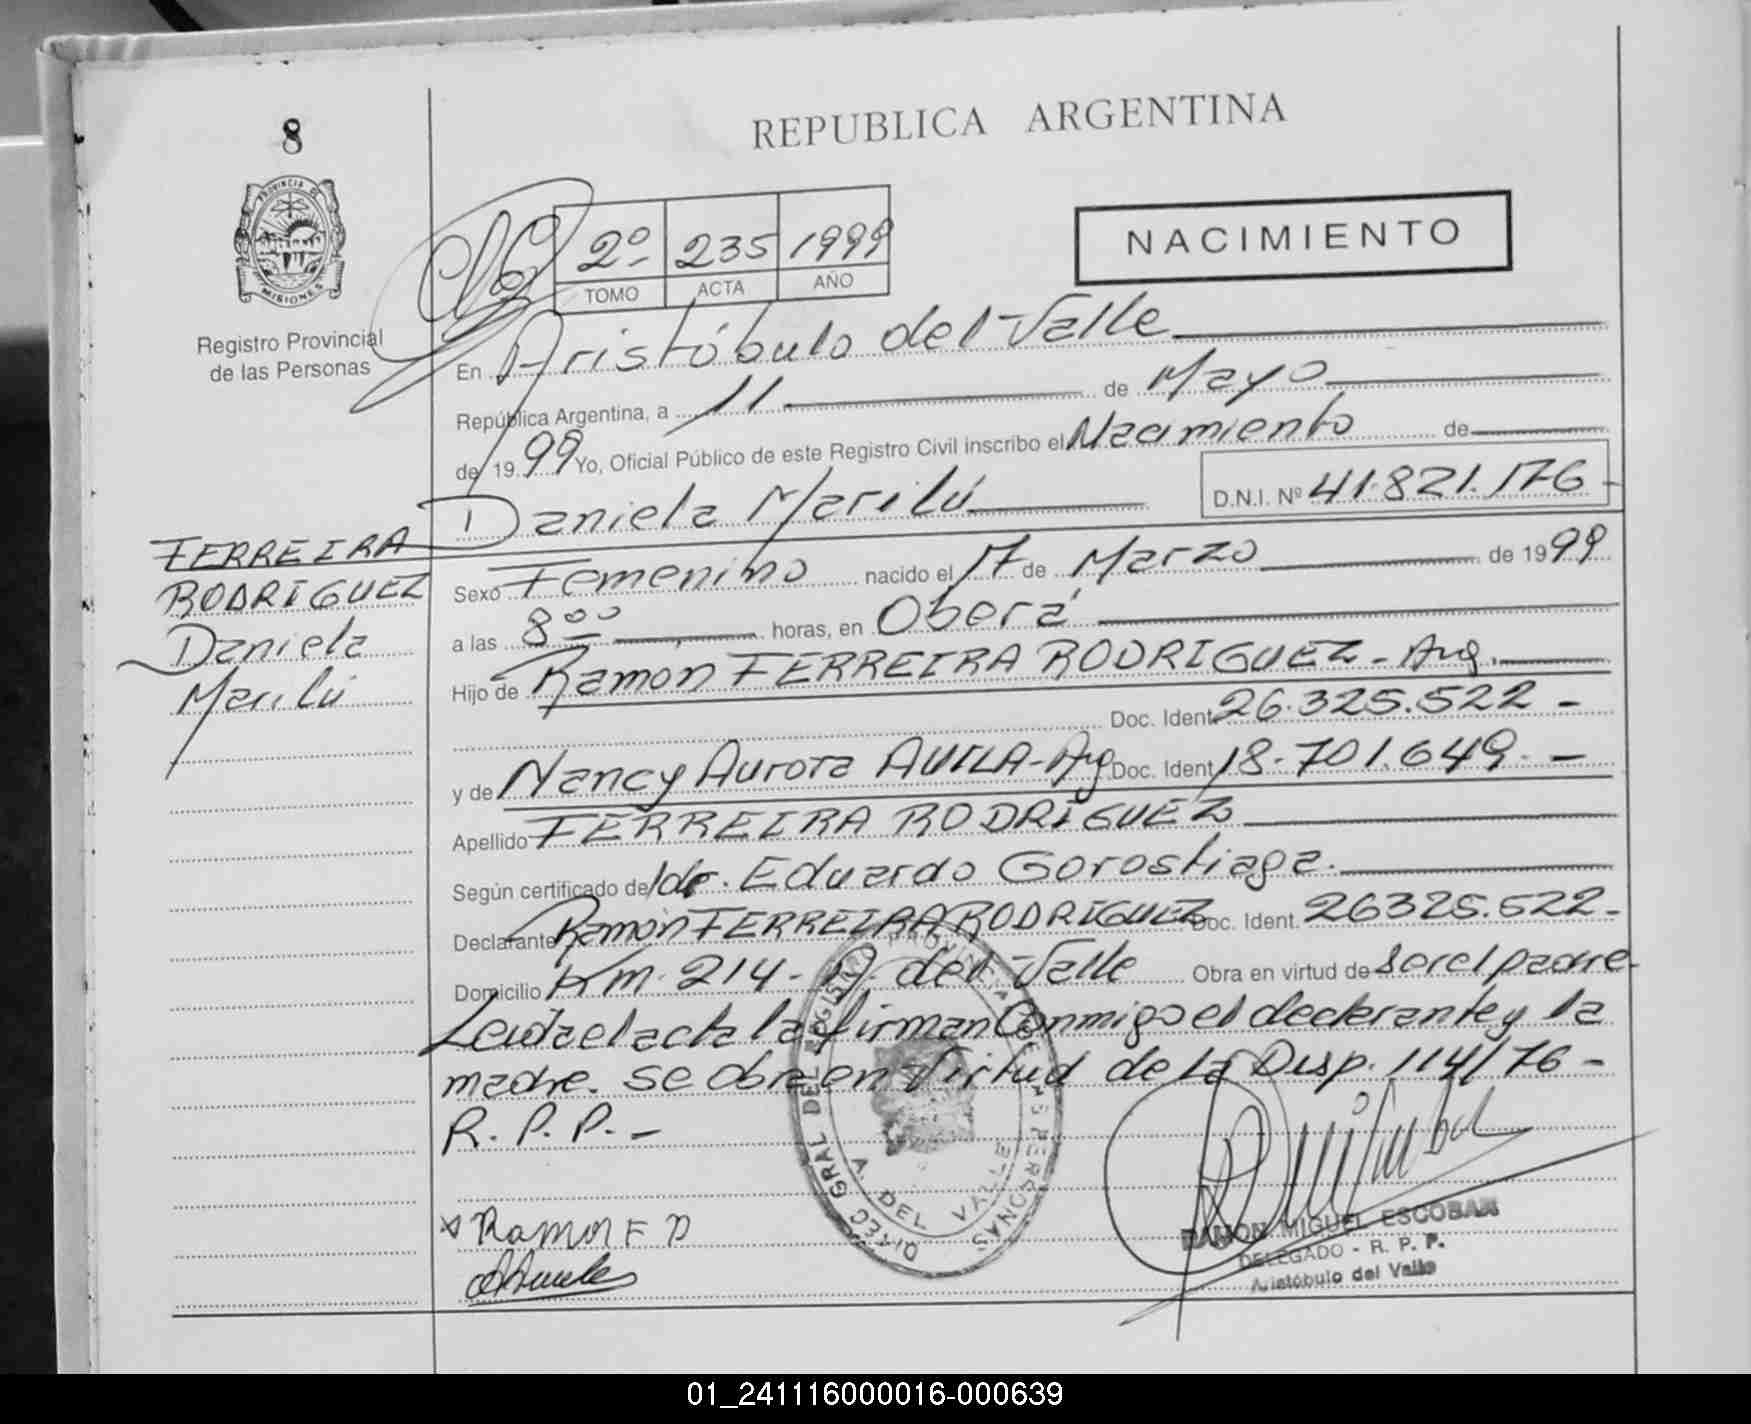 8
REPUBLICA ARGENTINA
PROVINCIA DE
MISIONES
Registro Provincial
de las Personas
2º 235 1999
TOMO ACTA AÑO
NACIMIENTO
En Aristóbulo del Valle
República Argentina, a 11 de Mayo
de 1999 Yo, Oficial Público de este Registro Civil inscribo el Nacimiento de
Daniela Marilú D.N.I. Nº 41.821.176 -
FERREIRA
RODRIGUEZ
Daniela
Marilú
Sexo Femenino nacido el 17 de Marzo de 1999
a las 8 ºº horas, en Oberá
Hijo de Ramon FERREIRA RODRIGUEZ - Arg.
Doc. Ident. 26.325.522 -
y de Nancy Aurora AVILA - Arg. Doc. Ident. 18.701.649. -
Apellido FERREIRA RODRÍGUEZ
Según certificado del dr. Eduardo Gorostiaga.
Declarante Ramón FERREIRA RODRÍGUEZ Doc. Ident. 26325.522 -
Domicilio Km. 214 - A. del Valle Obra en virtud de ser el padre -
Leida el acta la firman Conmigo el declarante y la
madre. se obra en Virtud de la Disp. 114/76 -
R. P. P. -
DIREC GRAL DEL REGISTRO PROVINCIAL DE LAS PERSONAS
A. DEL VALLE
Ramon F D
RAMON MIGUEL ESCOBAR
DELEGADO - R. P. P.
Aristóbulo del Valle
01_241116000016-000639